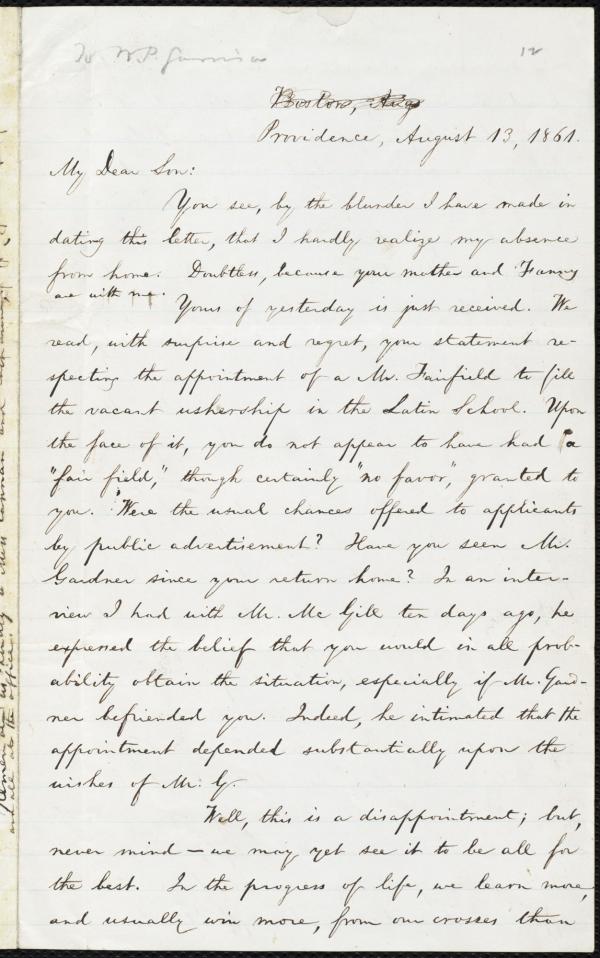 To W. P. Garrison
12
Boston, Aug
Providence, August 13, 1861.
My Dear Son:
You see, by the blunder I have made in
dating this letter, that I hardly realize my absence
from home. Doubtless, because your mother and Fanny
are with me.
Yours of yesterday is just received. We
read, with surprise and regret, your statement re-
specting the appointment of a Mr. Fairfield to fill
the vacant ushership in the Latin School. Upon
the face of it, you do not appear to have had a
"fair field," though certainly "no favor," granted to
you. Were the usual chances offered to applicants
by public advertisement? Have you seen Mr.
Gardner since your return home? In an inter-
view I had with Mr. McGill ten days ago, he
expressed the belief that you would in all prob-
ability obtain the situation, especially if Mr. Gard-
ner befriended you. Indeed, he intimated that the
appointment depended substantially upon the
wishes of Mr. G.
Well, this is a disappointment; but,
never mind — we may yet see it to be all for
the best. In the progress of life, we learn more,
and usually win more, from our crosses than
and all at the office